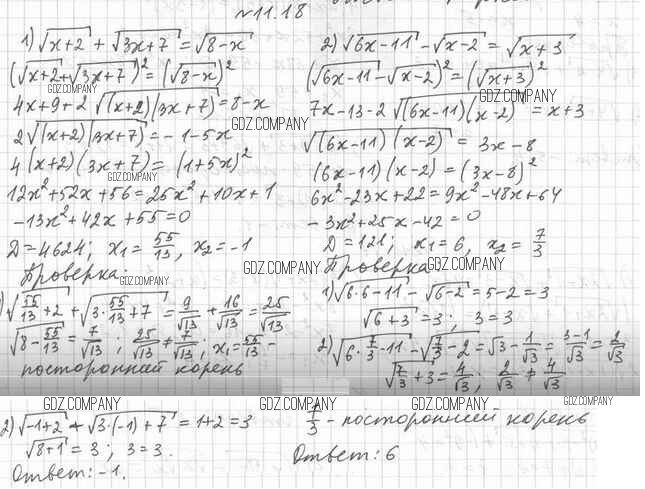 №11.18
1) √(x+2) + √(3x+7) = √(8-x)
(√(x+2)+√(3x+7))² = (√(8-x))²
4x+9+2√((x+2)(3x+7)) = 8-x
2√((x+2)(3x+7)) = -1-5x
4(x+2)(3x+7) = (1+5x)²
12x²+52x+56 = 25x²+10x+1
-13x²+42x+55=0
D=4624; x₁ = 55/13, x₂ = -1
Проверка:
1) √(55/13+2) + √(3·55/13+7) = 9/√13 + 16/√13 = 25/√13
√(8-55/13) = 7/√13; 25/√13 ≠ 7/√13; x₁=55/13 -
посторонний корень
2) √(-1+2) + √(3·(-1)+7) = 1+2=3
√(8+1) = 3; 3=3.
Ответ: -1.
2) √(6x-11) - √(x-2) = √(x+3)
(√(6x-11) - √(x-2))² = (√(x+3))²
7x-13-2√((6x-11)(x-2)) = x+3
√((6x-11)(x-2)) = 3x-8
(6x-11)(x-2) = (3x-8)²
6x²-23x+22=9x²-48x+64
-3x²+25x-42=0
D=121; x₁=6, x₂ = 7/3
Проверка
1) √(6·6-11) - √(6-2) = 5-2=3
√(6+3) = 3; 3=3
2) √(6·7/3-11) - √(7/3-2) = √3 - 1/√3 = (3-1)/√3 = 2/√3
√(7/3+3) = 4/√3; 2/√3 ≠ 4/√3
7/3 - посторонний корень
Ответ: 6
GDZ.COMPANY
GDZ.COMPANY
GDZ.COMPANY
GDZ.COMPANY
GDZ.COMPANY
GDZ.COMPANY
GDZ.COMPANY
GDZ.COMPANY
GDZ.COMPANY
GDZ.COMPANY
GDZ.COMPANY